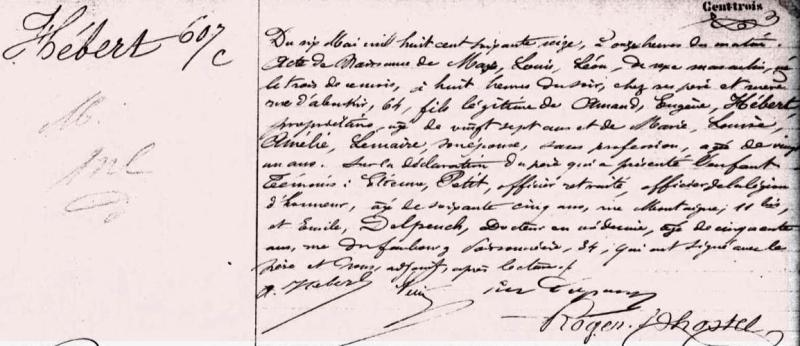 Cent trois
3
Hébert
607
C
Du six Mai mil huit cent soixante seize, à onze heures du matin.
Acte de Naissance de Max, Louis, Léon, de sexe masculin, né
le trois de ce mois, à huit heures du soir, chez ses père et mère
rue d'aboukir, 64, fils légitime de Amand, Eugène, Hébert,
propriétaire, agé de vingt sept ans et de Marie, Louise,
Amélie, Lemaire, son épouse, sans profession, agée de vingt
un ans. Sur la déclaration du père qui a présenté l'enfant
Témoins: Etienne, Petit, officier retraité, officier de la légion
d'honneur, agé de soixante cinq ans, rue Montaigne, 11 bis,
et Emile, Delpeuch, Docteur en médecine, agé de cinquante
ans, rue du faubourg Poissonnière, 34, qui ont signé avec le
père et nous, adjoint, après lecture./.
Hébert